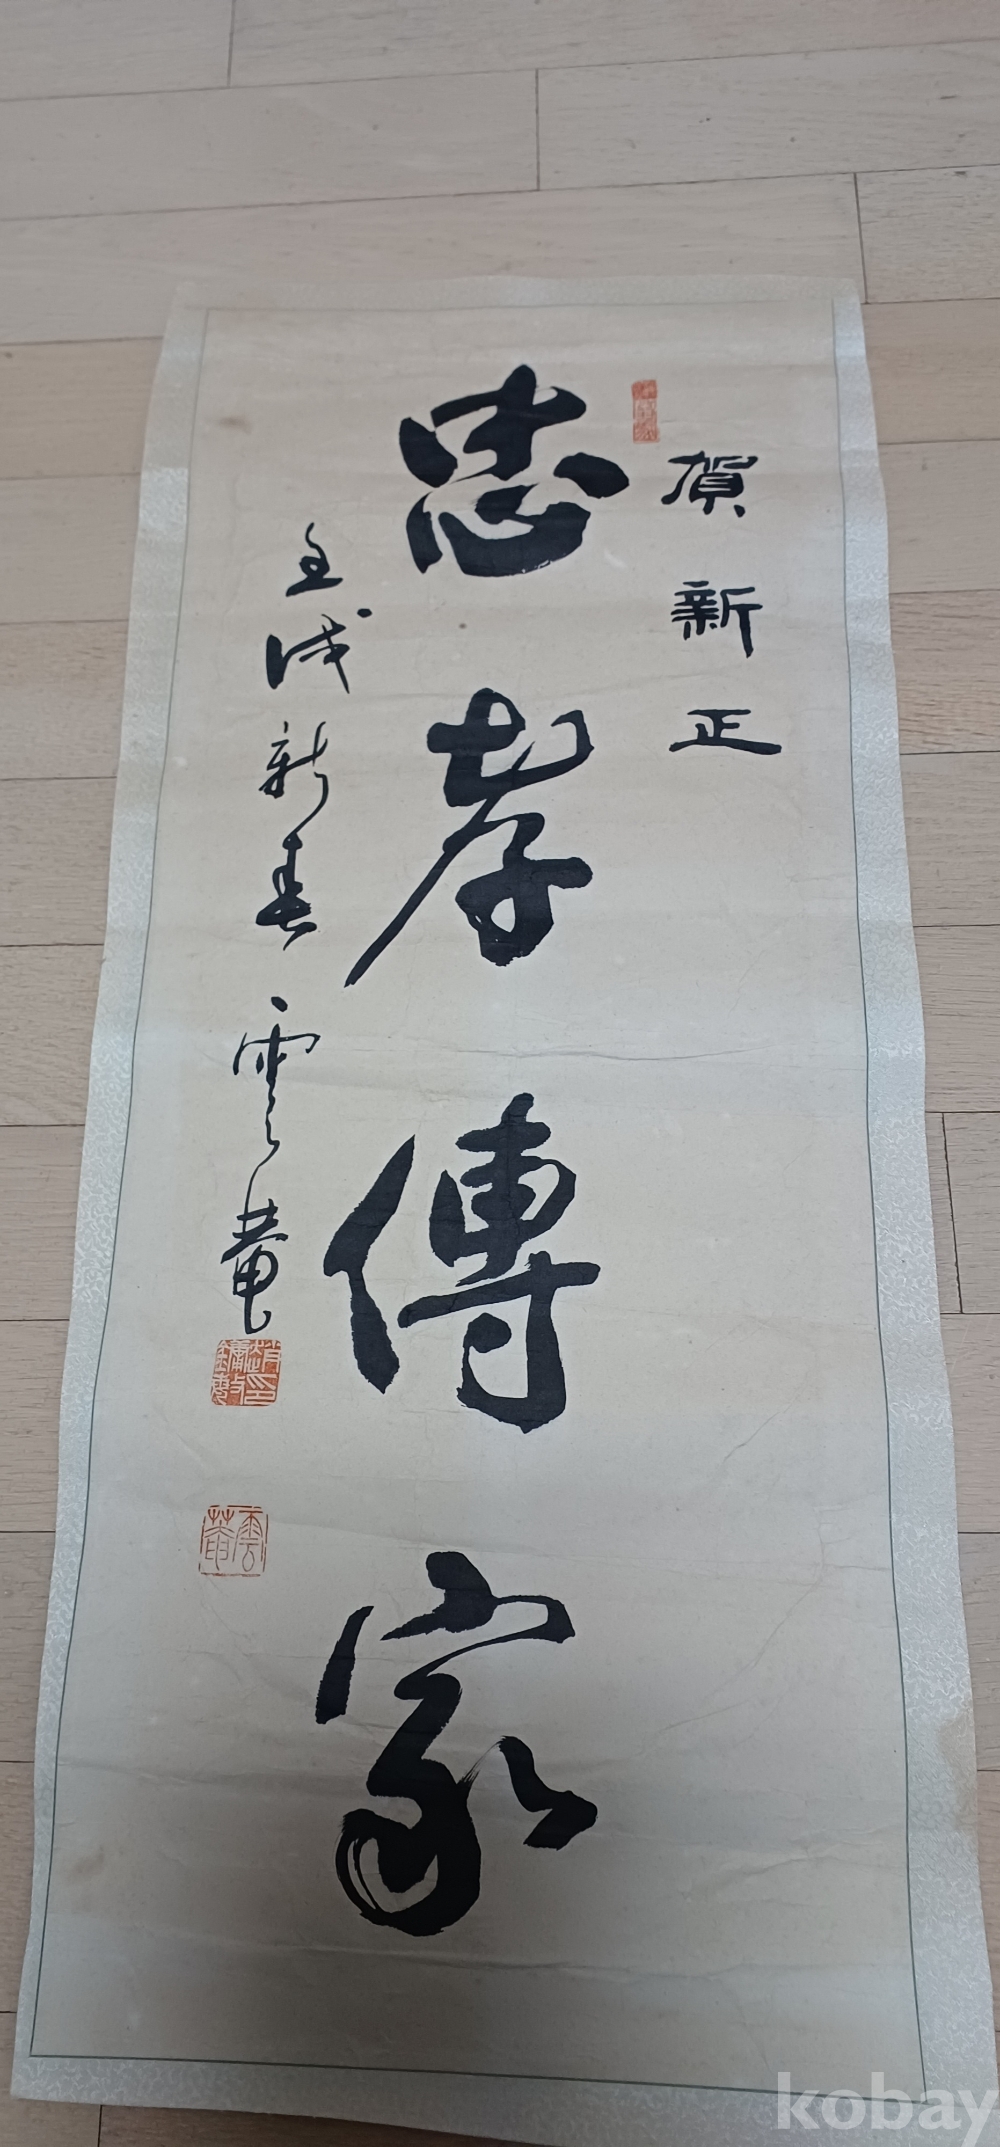 賀新正
忠孝傳家
壬戌新春 雲菴
雲菴
kobay